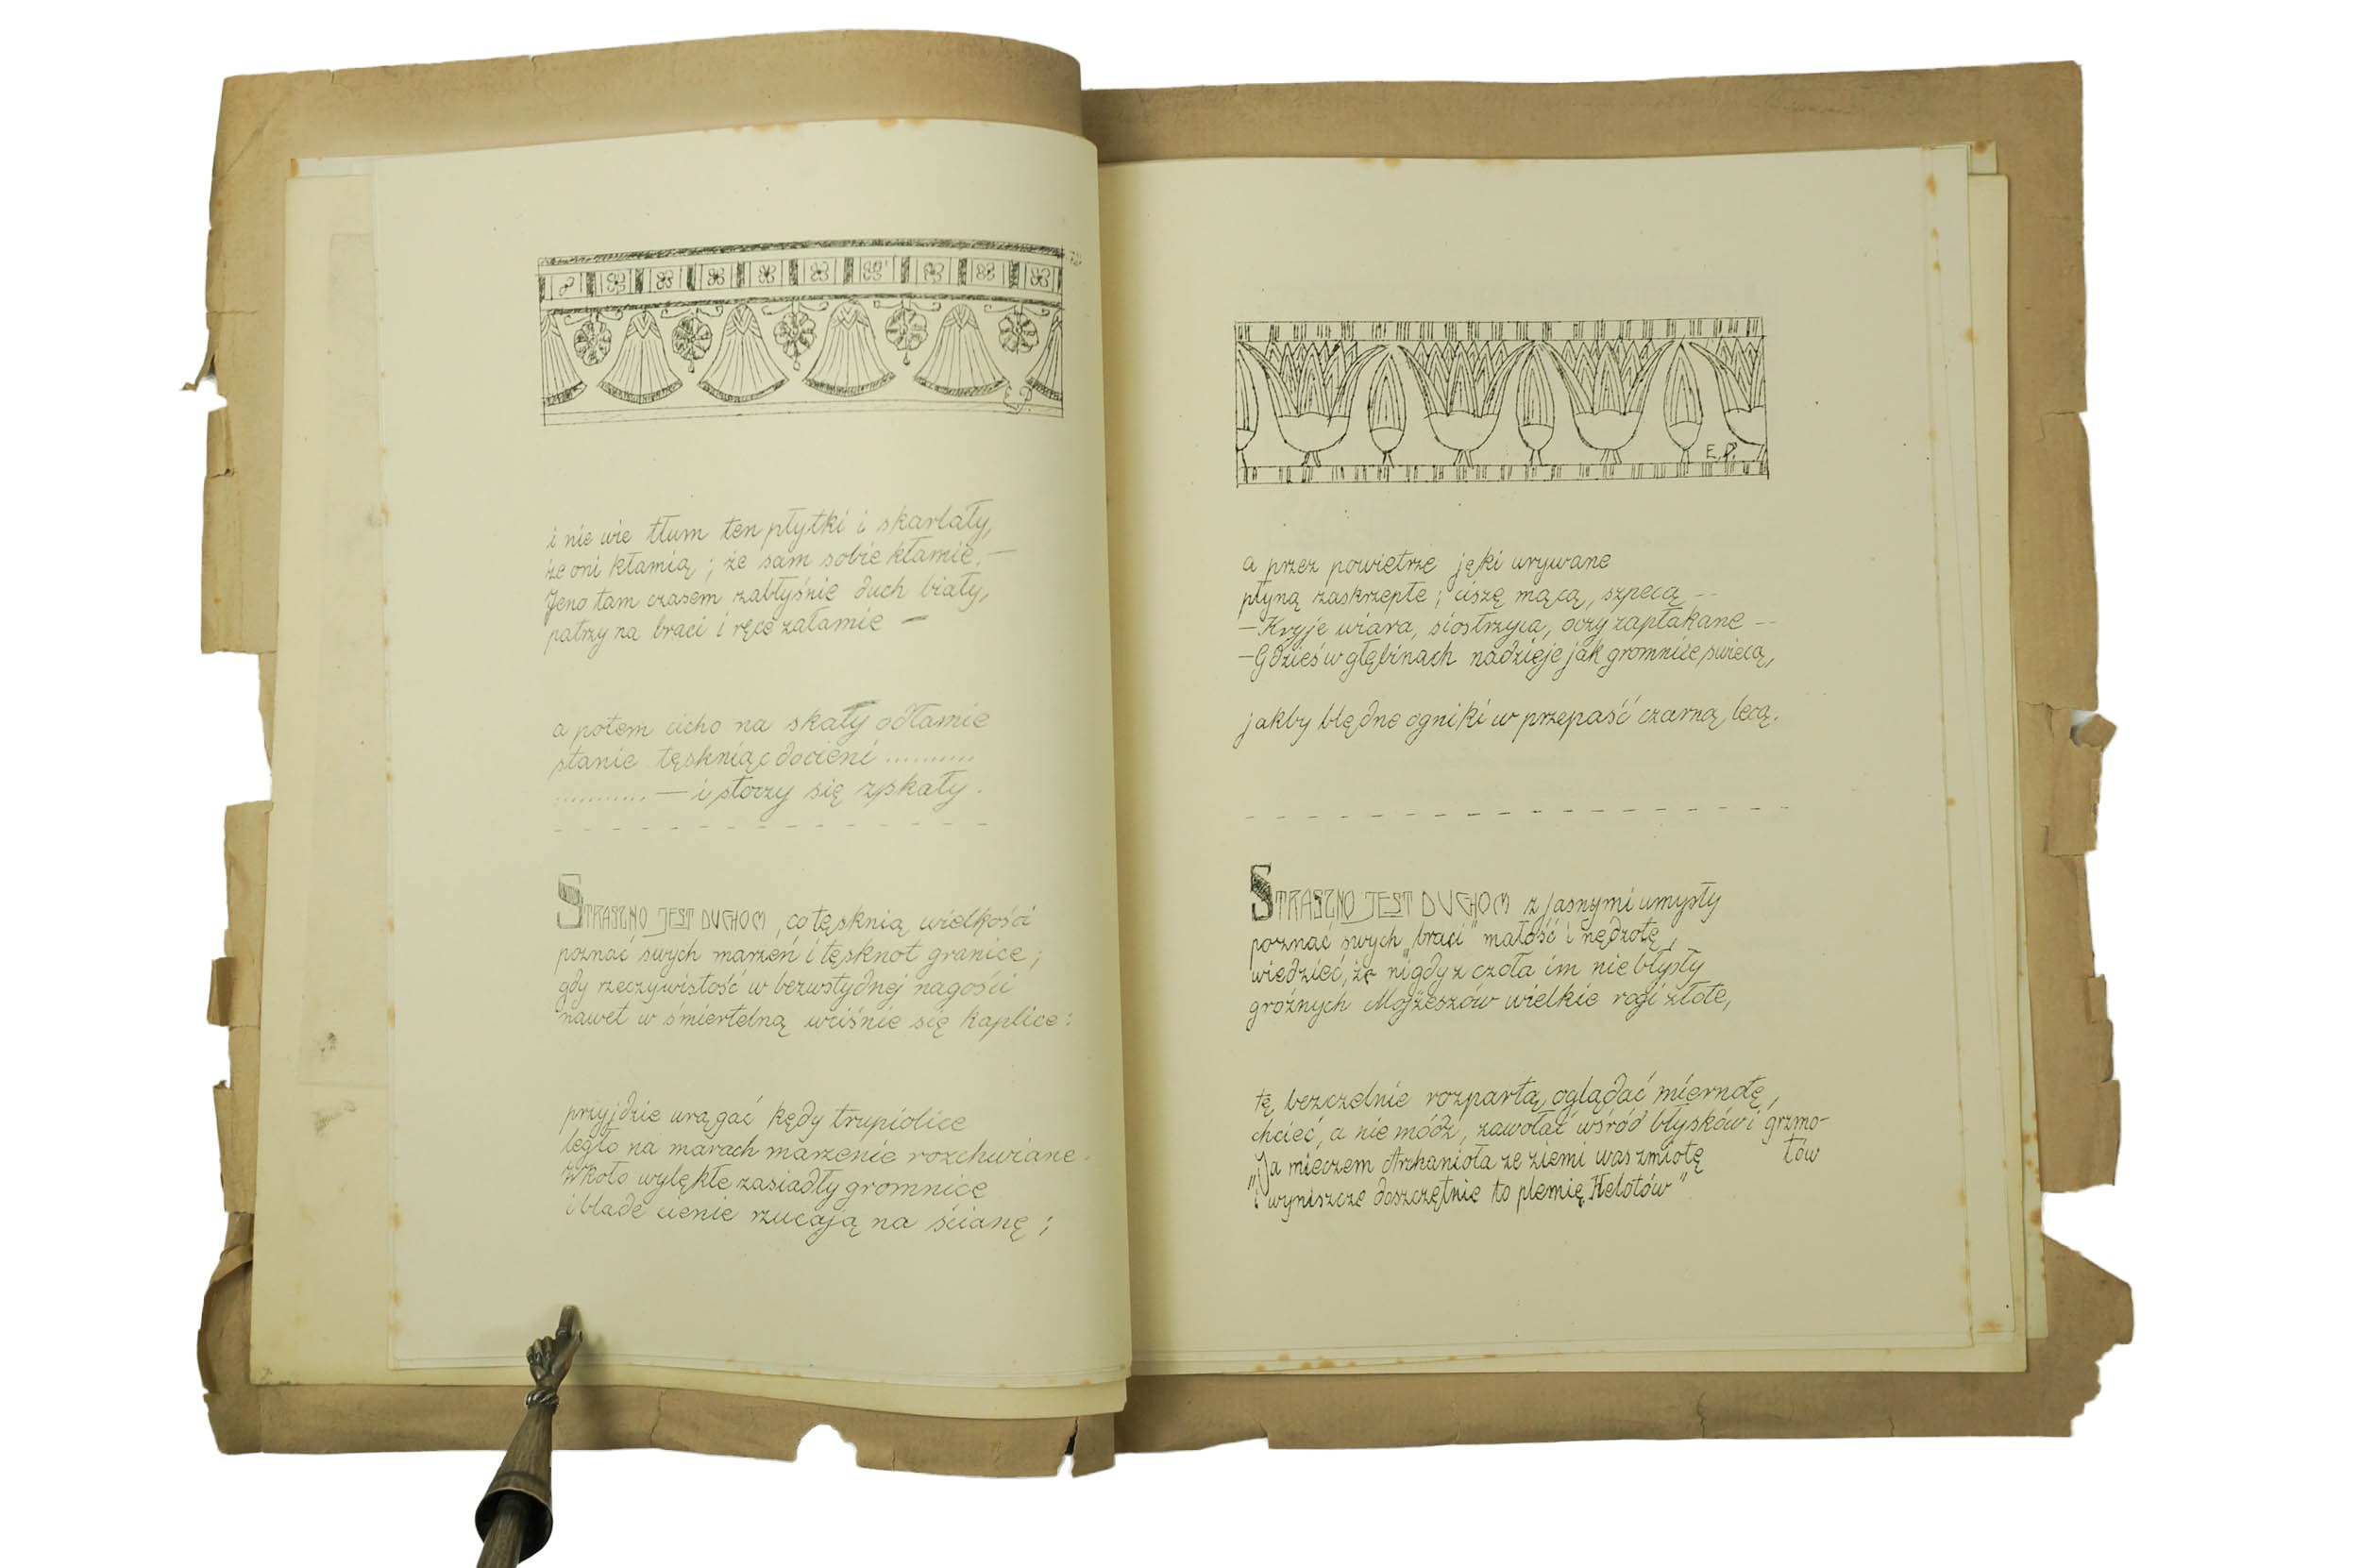 E.P.
i nie wie tłum ten płytki i skarlały,
że oni kłamią; że sam sobie kłamie. —
Jeno tam czasem zabłyśnie duch biały,
patrzy na braci i ręce załamie —
a potem cicho na skały odłamie
stanie tęskniąc do cieni ..........
.......... — i stoczy się z skały.
STRASZNO JEST DUCHOM, co tęsknią wielkości
poznać swych marzeń i tęsknot granice;
gdy rzeczywistość w bezwstydnej nagości
nawet w śmiertelną wciśnie się kaplice:
przyjdzie urągać kędy trupiolice
legło na marach marzenie rozchwiane.
Wkoło wylękłe zasiadły gromnice
i blade cienie rzucają na ścianę;
E.P.
a przez powietrze jęki urywane
płyną zaskrzepłe; ciszę mącą, szpecą --
— Kryje wiara, siostrzyca, oczy zapłakane --
— Gdzieś w głębinach nadzieje jak gromnice, świecą,
jakby błędne ogniki w przepaść czarną lecą.
STRASZNO JEST DUCHOM z jasnymi umysły
poznać swych „braci" małość i nędzotę,
wiedzieć, że nigdy z czoła im nie błysły
groźnych Mojżeszów wielkie rogi złote,
tę, bezczelnie rozpartą, oglądać miernotę,
chcieć, a nie módz, zawołać wśród błysków i grzmo-
tów
„Ja mieczem Archanioła ze ziemi was zmiotę
i wyniszczę doszczętnie to plemię Helotów"